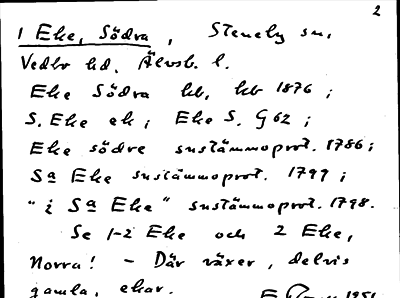 2
1 Eke, Södra, Steneby sn,
Vedbo hd. Älvsb. l.
Eke Södra hb, hb 1876;
S. Eke ek; Eke S. G 62;
Eke södre sustämmoprot. 1786;
Sa Eke sustämmoprot. 1799;
"i Sa Eke" sustämmoprot. 1798.
Se 1-2 Eke och 2 Eke,
Norra! - Där växer, delvis
gamla, ekar. 1951